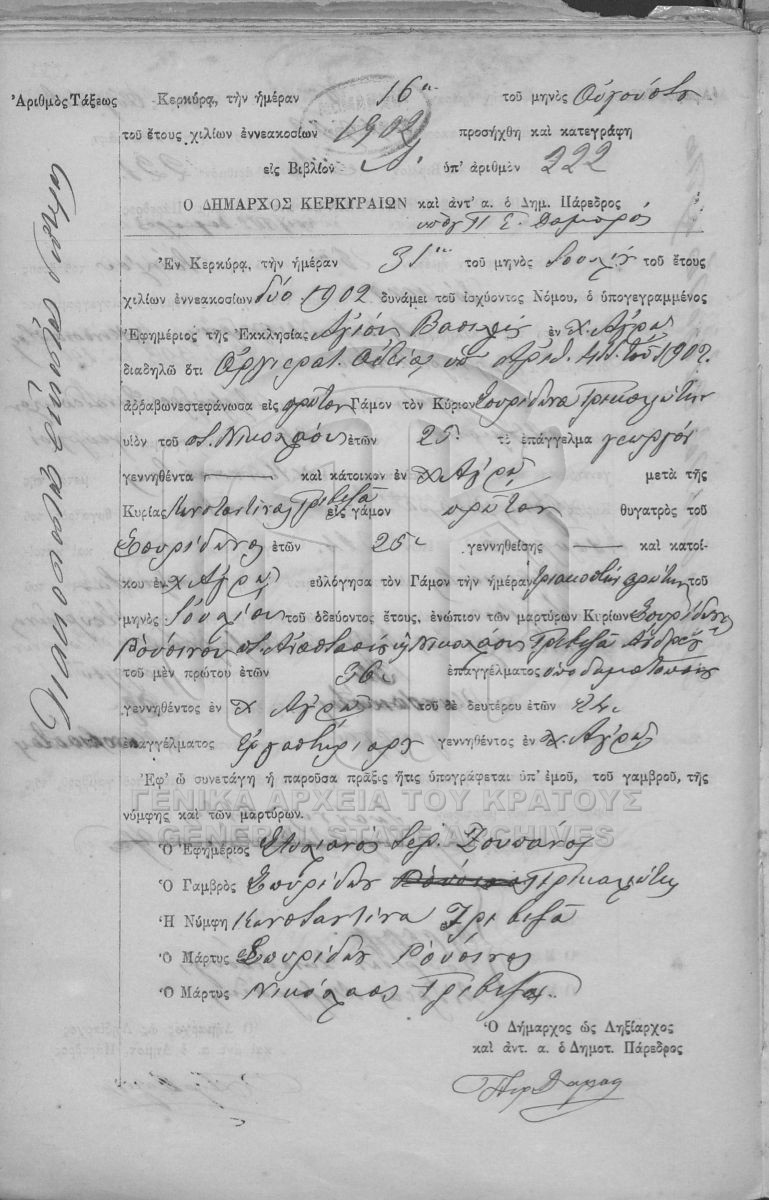 Ἀριθμὸς Τάξεως
Διακόσια εἴκοσι δύο
Κερκύρᾳ, τὴν ἡμέραν 16η τοῦ μηνὸς Αὐγούστου
τοῦ ἔτους χιλίων ἐννεακοσίων 1902 προσήχθη καὶ κατεγράφη
εἰς Βιβλίον Α' ὑπ' ἀριθμὸν 222
Ο ΔΗΜΑΡΧΟΣ ΚΕΡΚΥΡΑΙΩΝ καὶ ἀντ' α. ὁ Δημ. Πάρεδρος
Π Σ. Δαμασ
Ἐν Κερκύρᾳ, τὴν ἡμέραν 31η τοῦ μηνὸς Ἰουλίου τοῦ ἔτους
χιλίων ἐννεακοσίων δύο 1902 δυνάμει τοῦ ἰσχύοντος Νόμου, ὁ ὑπογεγραμμένος
Ἐφημέριος τῆς Ἐκκλησίας Ἁγίου Βασιλείου ἐν χ. Ἀγρῷ
διαδηλῶ ὅτι Ἀρχιερατ. ἀδείᾳ ὑπ' ἀριθ. τοῦ 1902
ἀρραβωνεστεφάνωσα εἰς πρῶτον Γάμον τὸν Κύριον Σπυρίδωνα Τρικαλιώτην
υἱὸν τοῦ π. Νικολάου ἐτῶν 25 τὸ ἐπάγγελμα γεωργὸν
γεννηθέντα — καὶ κάτοικον ἐν χ. Ἀγρῷ μετὰ τῆς
Κυρίας Κωνσταντίνας Τρίβιζα εἰς γάμον πρῶτον θυγατρὸς τοῦ
Σπυρίδωνος ἐτῶν 25 γεννηθείσης — καὶ κατοί-
κου ἐν χ. Ἀγρῷ εὐλόγησα τὸν Γάμον τὴν ἡμέραν τριακοστὴν πρώτην τοῦ
μηνὸς Ἰουλίου τοῦ ὁδεύοντος ἔτους, ἐνώπιον τῶν μαρτύρων Κυρίων Σπυρίδωνος
Ρούσινου π. Ἀναστασίου Νικολάου Τρίβιζα Ἀνδρέου
τοῦ μὲν πρώτου ἐτῶν 36 ἐπαγγέλματος ὑποδηματοποιοῦ
γεννηθέντος ἐν χ. Ἀγρῷ τοῦ δὲ δευτέρου ἐτῶν
ἐπαγγέλματος ἐργαστηριάρχου γεννηθέντος ἐν χ. Ἀγρῷ
Ἐφ' ᾧ συνετάγη ἡ παροῦσα πρᾶξις ἥτις ὑπογράφεται ὑπ' ἐμοῦ, τοῦ γαμβροῦ, τῆς
νύμφης καὶ τῶν μαρτύρων.
ΓΕΝΙΚΑ ΑΡΧΕΙΑ ΤΟΥ ΚΡΑΤΟΥΣ
GENERAL STATE ARCHIVES
Ὁ Ἐφημέριος Στυλιανὸς Ἱερ. Ζουπάνος
Ὁ Γαμβρὸς Σπυρίδων Τρικαλιώτης
Ἡ Νύμφη Κωνσταντίνα Τριβιζᾶ
Ὁ Μάρτυς Σπυρίδων Ρούσινος
Ὁ Μάρτυς Νικόλαος Τρίβιζας
Ὁ Δήμαρχος ὡς Ληξίαρχος
καὶ ἀντ. α. ὁ Δημοτ. Πάρεδρος